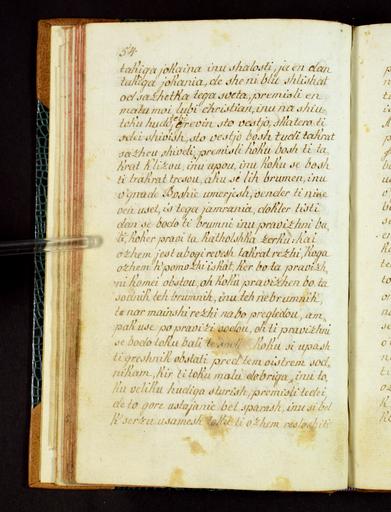 54
takiga jokaina inu shalosti, je en dan
takiga jokania, de she ni blu shlishat
od sazhetka tega sveta, premisli en
malu moi lubi christian, inu na shiu
toku hudi grevin, sto vestjo, skatera ti
sedei shivish, sto vestjo bosh tudi takrat
sazheu shiveti, premisli koku bosh ti ta
krat klizou, inu upou, inu koku se bosh
ti trakrat tresou, aku si lih brumen, inu
v'gnade Boshie umerjesh, vender ti nine
vea uset, is tega jamrania, dokler tisti
dan se bodo ti brumni inu pravizhni ba
ti, koker pravi ta Katholshka zerku kai
ozhem jest ubogi revesh takrat rezhi, koga
ozhem k'pomozhi iskat, ker bo ta pravizh,
ni komei obstou, oh koku pravizhen bo ta
sodnik teh brumnih, inu teh nebrumnih,
te nar mainshi rezhi na bo pregledou, am,
pak use po pravizi sodou, oh ti pravizhni
se bodo toku bali te koku si upash
ti greshnik obstati pred tem oistrem sod,
nikam, kir ti toku malu dobriga, inu to,
ku veliku hudiga sturish, premisli tedei,
de to gore ustajanje bel sparash, inu si bel
k'serzu usamesh ti ozhem